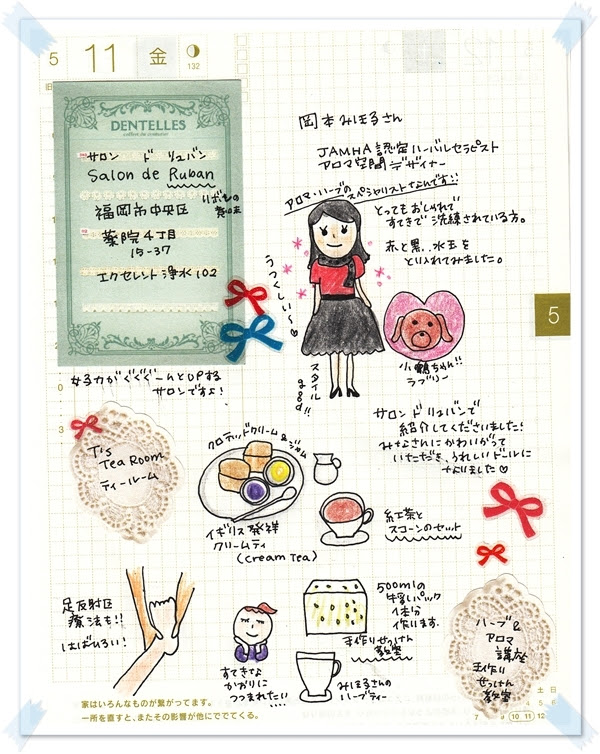 5
11
金
132
旧
DENTELLES
サロン ド リュバン
Salon de Ruban
福岡市中央区
薬院4丁目
15-37
エクセレント浄水102
岡本みほ子さん
JAMHA認定ハーバルセラピスト
アロマ空間デザイナー
アロマ・ハーブのスペシャリストなんです!!
とってもおしゃれで
すてきで洗練されている方。
赤と黒、水玉を
とり入れてみました。
うつくしい〜
スタイル
good!!
小鶴ちゃん!!
ラブリー
5
女子力がぐぐぐーんとUPする
サロンですよ!
サロンドリュバンで
紹介してくださいました!
みなさんにかわいがって
いただき、うれしいドールに
なりました
0
3
T's
Tea Room
ティールーム
クロテッドクリーム&ジャム
イギリス発祥
クリームティ
(cream tea)
紅茶と
スコーンのセット
足反射区
療法も!!
はばひろい!
すてきな
かおりに
つつまれたい....
500mlの
牛乳パック
1本分
作ります。
手作りせっけん
教室
みほ子さんの
ハーブティー
ハーブ&
アロマ
講座
手作り
せっけん
教室
家はいろんなものが繋がってます。
一所を直すと、またその影響が他にでてくる。
土 日
5 6
7 9 10 11 12